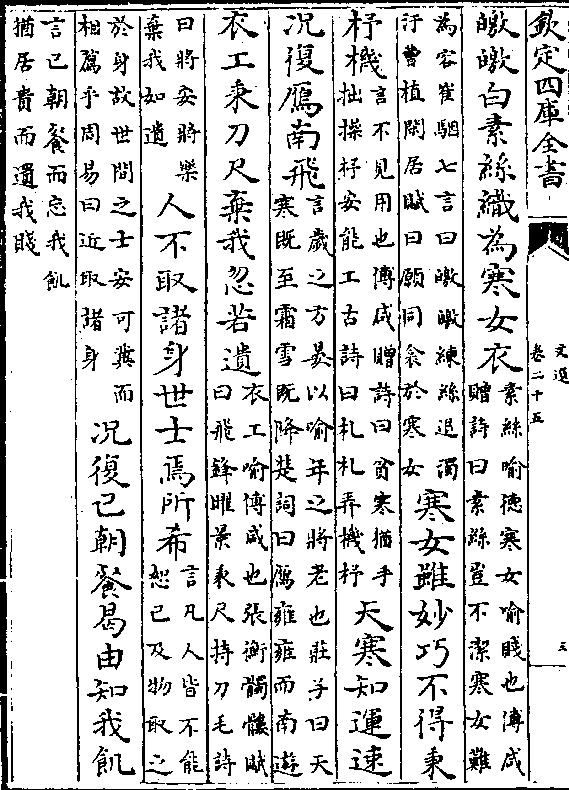 欽定四庫全書
文選
卷二十五
五
皦皦白素絲織為寒女衣
素絲喻徳寒女喻賤也傅咸
贈詩曰素絲豈不潔寒女難
為容崔駰七言曰皦皦練絲退濁
汙曹植閑居賦曰願同衾於寒女
寒女雖妙巧不得秉
杼機
言不見用也傅咸贈詩曰貧寒猶手
拙操杼安能工古詩曰札札弄機杼
天寒知運速
況復鴈南飛
言歲之方晏以喻年之將老也莊子曰天
寒既至霜雪既降楚詞曰鴈雍雍而南遊
衣工秉刀尺棄我忽若遺
衣工喻傅咸也張衡髑髏賦
曰飛鋒曜景秉尺持刀毛詩
曰將安將樂
棄我如遺
人不取諸身世士焉所希
言凡人皆不能
恕己及物取之
於身故世間之士安可冀而
相薦乎周易曰近取諸身
況復已朝餐曷由知我飢
言已朝餐而忘我飢
猶居貴而遺我賤